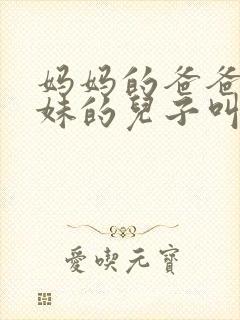 妈妈的爸爸
妹的兒子叫
愛喫元寶